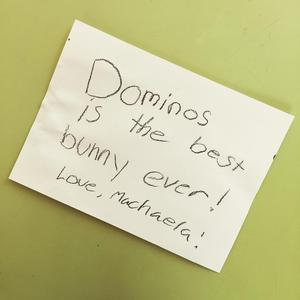 Dominos
is the best
bunny ever!
Love, Machaela!